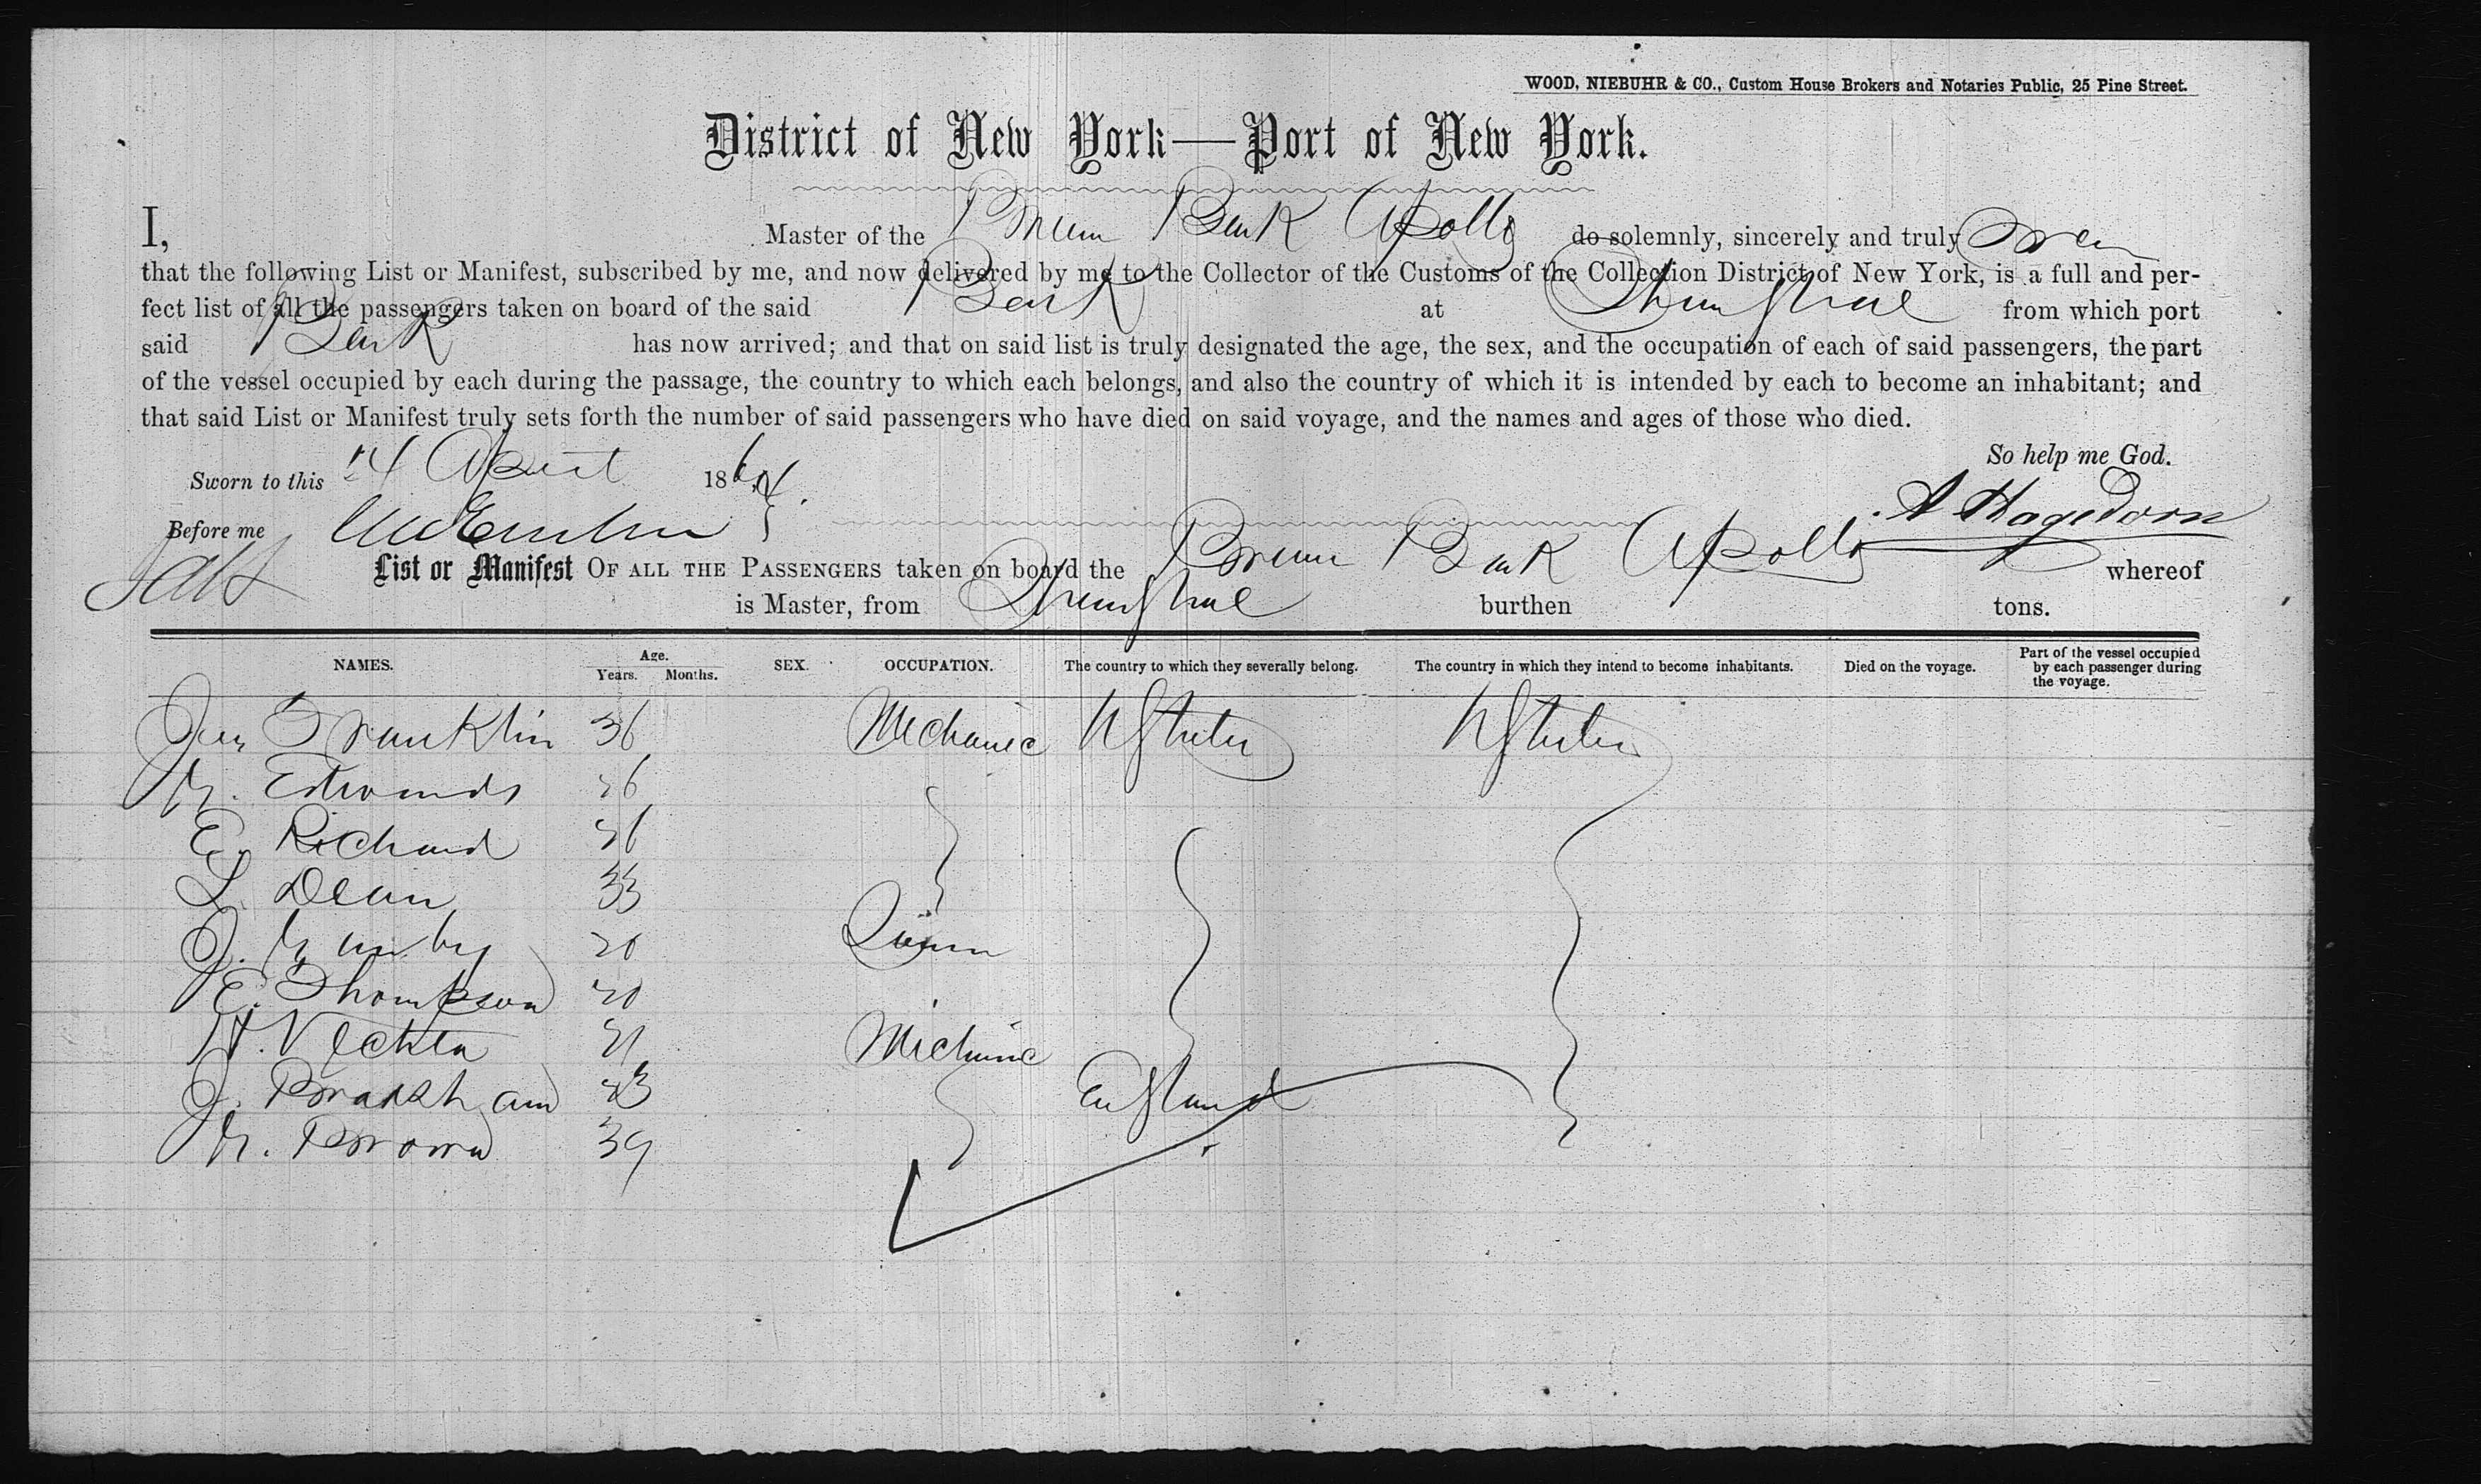 WOOD, NIEBUHR & CO., Custom House Brokers and Notaries Public, 25 Pine Street.
District of New York—Port of New York.
I, Master of the Brem Bark Apollo do solemnly, sincerely and truly swear
that the following List or Manifest, subscribed by me, and now delivered by me to the Collector of the Customs of the Collection District of New York, is a full and per-
fect list of all the passengers taken on board of the said Bark at Shanghae from which port
said Bark has now arrived; and that on said list is truly designated the age, the sex, and the occupation of each of said passengers, the part
of the vessel occupied by each during the passage, the country to which each belongs, and also the country of which it is intended by each to become an inhabitant; and
that said List or Manifest truly sets forth the number of said passengers who have died on said voyage, and the names and ages of those who died.
So help me God.
Sworn to this 14 April 1864.
A Hagedorn
Before me
List or Manifest OF ALL THE PASSENGERS taken on board the Brem Bark Apollo whereof
is Master, from Shanghae burthen tons.
NAMES. Age. Years. Months. SEX. OCCUPATION. The country to which they severally belong. The country in which they intend to become inhabitants. Died on the voyage. Part of the vessel occupied by each passenger during the voyage.
Franklin 36 Mechanic UStates UStates
Edwards 26
E. Richard
L. Dean 33
J. 20
E. Thompson 20
H. Mechanic
J. 23 England
M. Brown 39